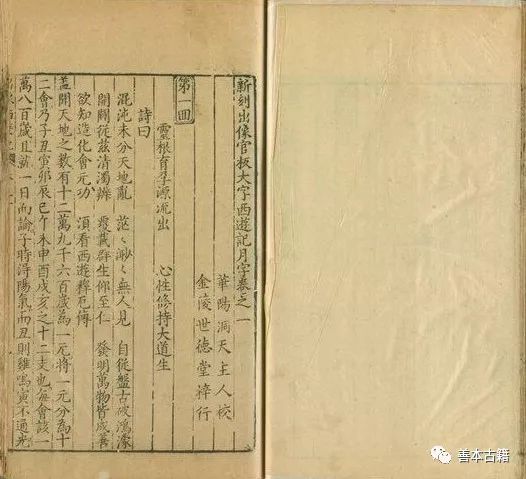 新刻出像官板大字西遊記月字卷之一
華陽洞天主人校
金陵世德堂梓行
第一回
靈根育孕源流出　心性修持大道生
詩曰
混沌未分天地亂　茫〻渺〻無人見　自從盤古破鴻濛
開闢從茲清濁辨　覆載群生仰至仁　發明萬物皆成善
欲知造化會元功　須看西遊釋厄傳
蓋聞天地之數有十二萬九千六百歲為一元將一元分為十
二會乃子丑寅卯辰巳午未申酉戌亥之十二支也每會該一
萬八百歲且就一日而論子時得陽氣而丑則雞鳴寅不通光
善本古籍